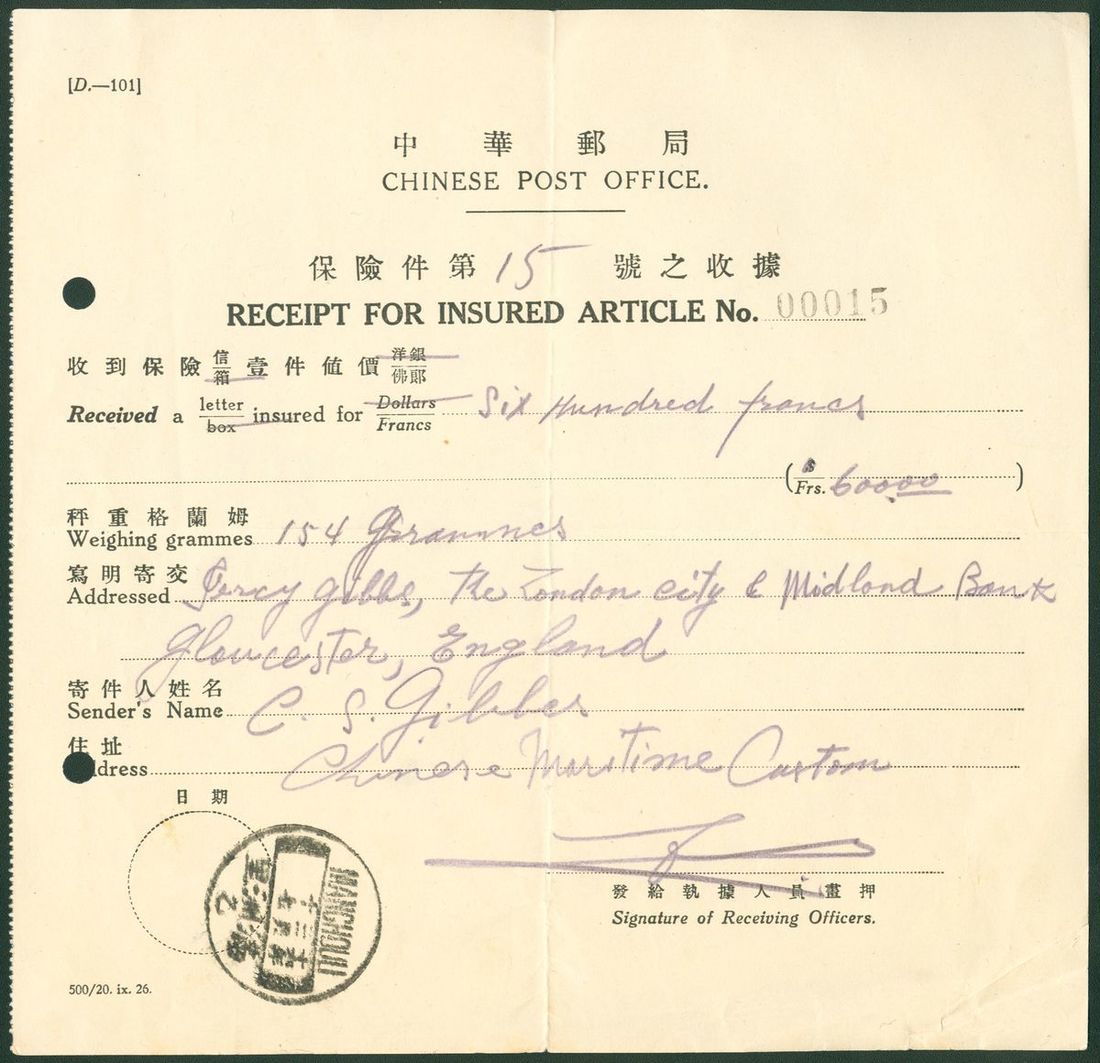 [D.—101]
中華郵局
CHINESE POST OFFICE.
保險件第 15 號之收據
RECEIPT FOR INSURED ARTICLE No. 00015
收到保險信箱壹件值價洋銀佛郎
Received a letter box insured for Dollars Francs Six Hundred francs
($ Frs. 600.00)
秤重格蘭姆
Weighing grammes 154 Grammes
寫明寄交
Addressed Percy Gibbs, The London City & Midland Bank
Gloucester, England
寄件人姓名
Sender's Name C. S. Gibbes
住址
ddress Chinese Maritime Custom
日期
MANCHOULI
發給執據人員畫押
Signature of Receiving Officers.
500/20. ix. 26.